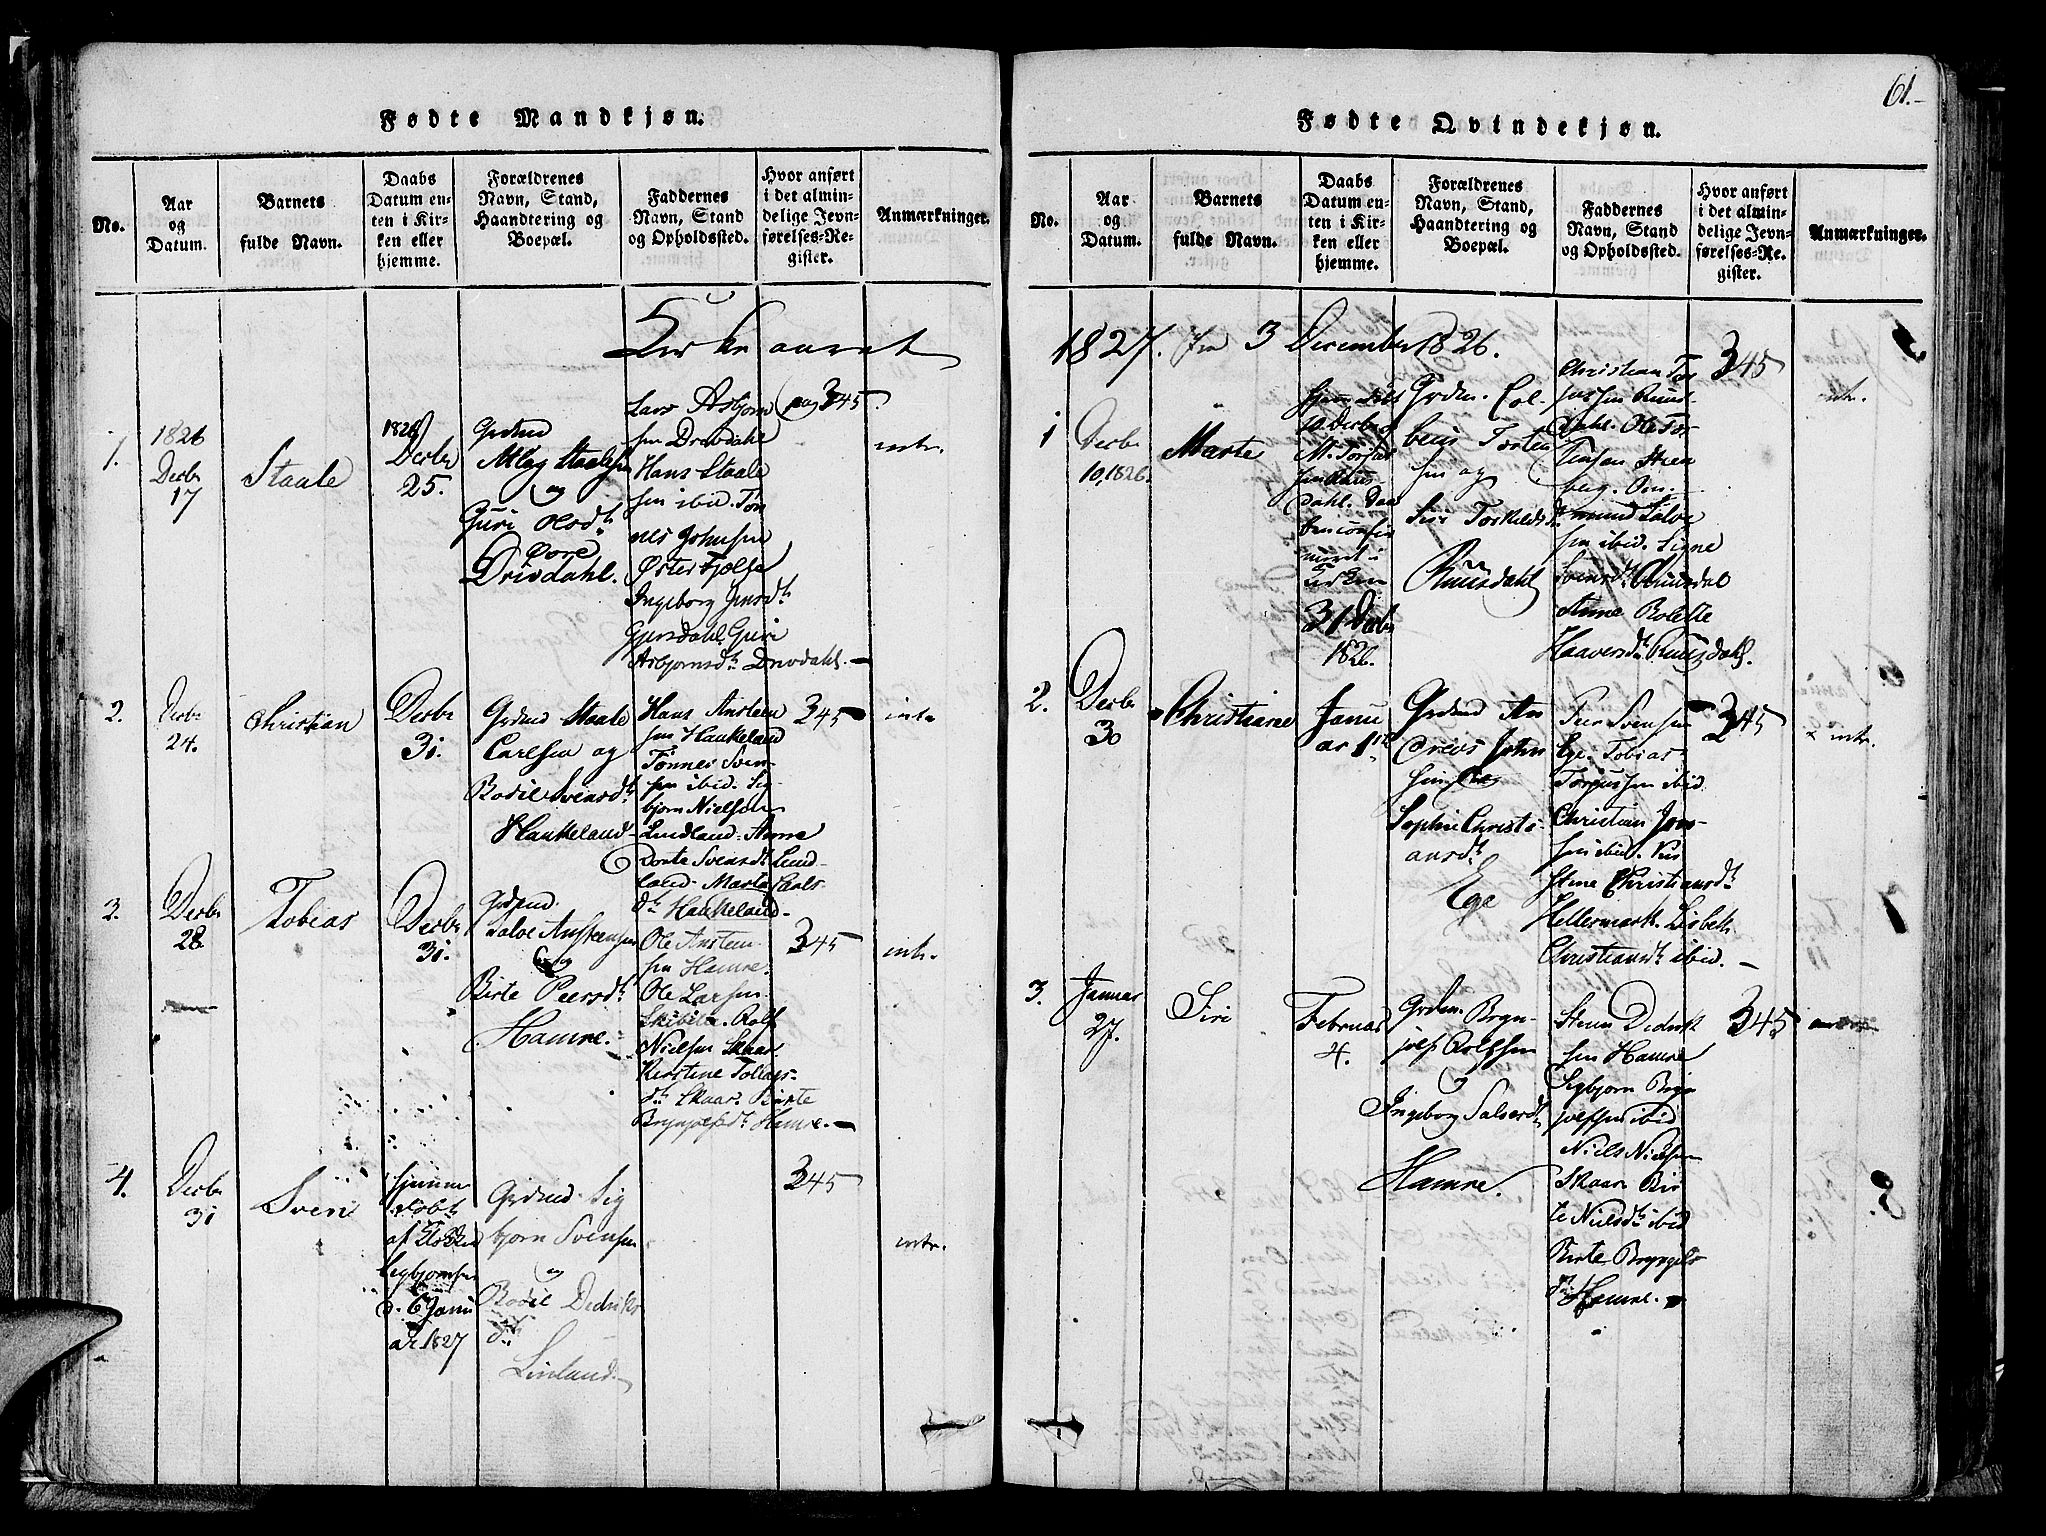 61.-
Fødte Mandkjøn.
No.
Aar
og
Datum.
Barnets
fulde Navn.
Daabs
Datum en-
ten i Kir-
ken eller
hjemme.
Forældrenes
Navn, Stand,
Haandtering og
Boepæl.
Faddernes
Navn, Stand
og Opholdssted.
Hvor anført
i det almin-
delige Jevn-
førelses-Re-
gister.
Anmærkninger.
Kirkeaaret
1.
1826
Decbr
17
Staale
1826
Decbr
25.
Grdmd
Atlag Staalesen
og
Guri Olsdtr
Øvre
Drivdahl.
Lars Asbjorn
sen Drivdahl
Hans Staale
sen ibid. Tøn
nes Johnsen
Øster Fjelse
Ingeborg Jensdtr
Gyersdahl Guri
Asbjornsdtr Drivdahl.
pag 345.
intr.
2.
Decbr
24.
Christian
Decbr
31.
Grdmd Staale
Carlsen og
Bodil Svensdtr
Haukeland
Hans Ansteen
sen Haukeland
Tönnes Sven-
sen ibid. Sig
bjorn Nielsen
Lindland. Anna
Dorte Svensdtr Lind-
land. Marta Carls
dtr Haukeland.
345
intr
3.
Decbr
28.
Tobias
Decbr
31.
Grdmd
Salve Ansteensen
og
Birte Peersdtr
Hamre.
Ole Ansteen
sen Hamre.
Ole Larsen
Skibeli. Rolf
Nielsen Skaar
Kirstine Tollags-
dtr Skaar. Birte
Brynjolfsdtr Hamre.
345
intr.
4.
Decbr
31
Sven
hjemme
döbt
af
Sigbjornsen
d. 6 Janu
ar 1827
Grdmd Sig
bjorn Svensen
og
Bodil Dedriks
dtr
Linland
345
intr.
Fødte Qvindekjøn.
No.
Aar
og
Datum.
Barnets
fulde Navn.
Daabs
Datum en-
ten i Kir-
ken eller
hjemme.
Forældrenes
Navn, Stand,
Haandtering og
Boepæl.
Faddernes
Navn, Stand
og Opholdssted.
Hvor anført
i det almin-
delige Jevn-
førelses-Re-
gister.
Anmærkninger.
1827. fra 3 December 1826.
1
Decbr
10, 1826.
Marte
hjem döbt
10 Decbr af
M. Torjus
sen Ruus
dahl. Daa
ben confir
meret i
Kirken
31 Decbr
1826.
Grdm. Col-
beus Torsten
sen og
Siri Torkildsdtr
Ruusdahl
Christian Tor
jussen Ruus-
dahl. Ole Tor
Steen
berg. Om-
mund Salve
sen ibid. Signe
Svensdtr Ruusdal
Anne Bolette
Haaversdtr Ruusdahl.
345
intr.
2.
Decbr
30
Christiane
Janu
ar 1ste
Grdmd An
dreas John
sen Ege og
Sophie Christi-
ansdtr
Ege
Peer Svensen
Ege. Tobias
Torgussen ibid
Christian Jon-
sen ibid. Kir
stine Christiansdtr
Hellermark. Lisbeth
Christiansdtr ibid.
345
intr.
3.
Januar
27.
Siri
Februar
4.
Grdm. Bryn-
jolf Rolfsen
og
Ingeborg Salvesdtr
Hamre.
Steen Didrik
sen Hamre
Sigbjorn Bryn
jolfsen ibid
Niels Nielsen
Skaar. Bir
te Nielsdtr ibid
Birte Brynjolfs
dtr Hamre.
345